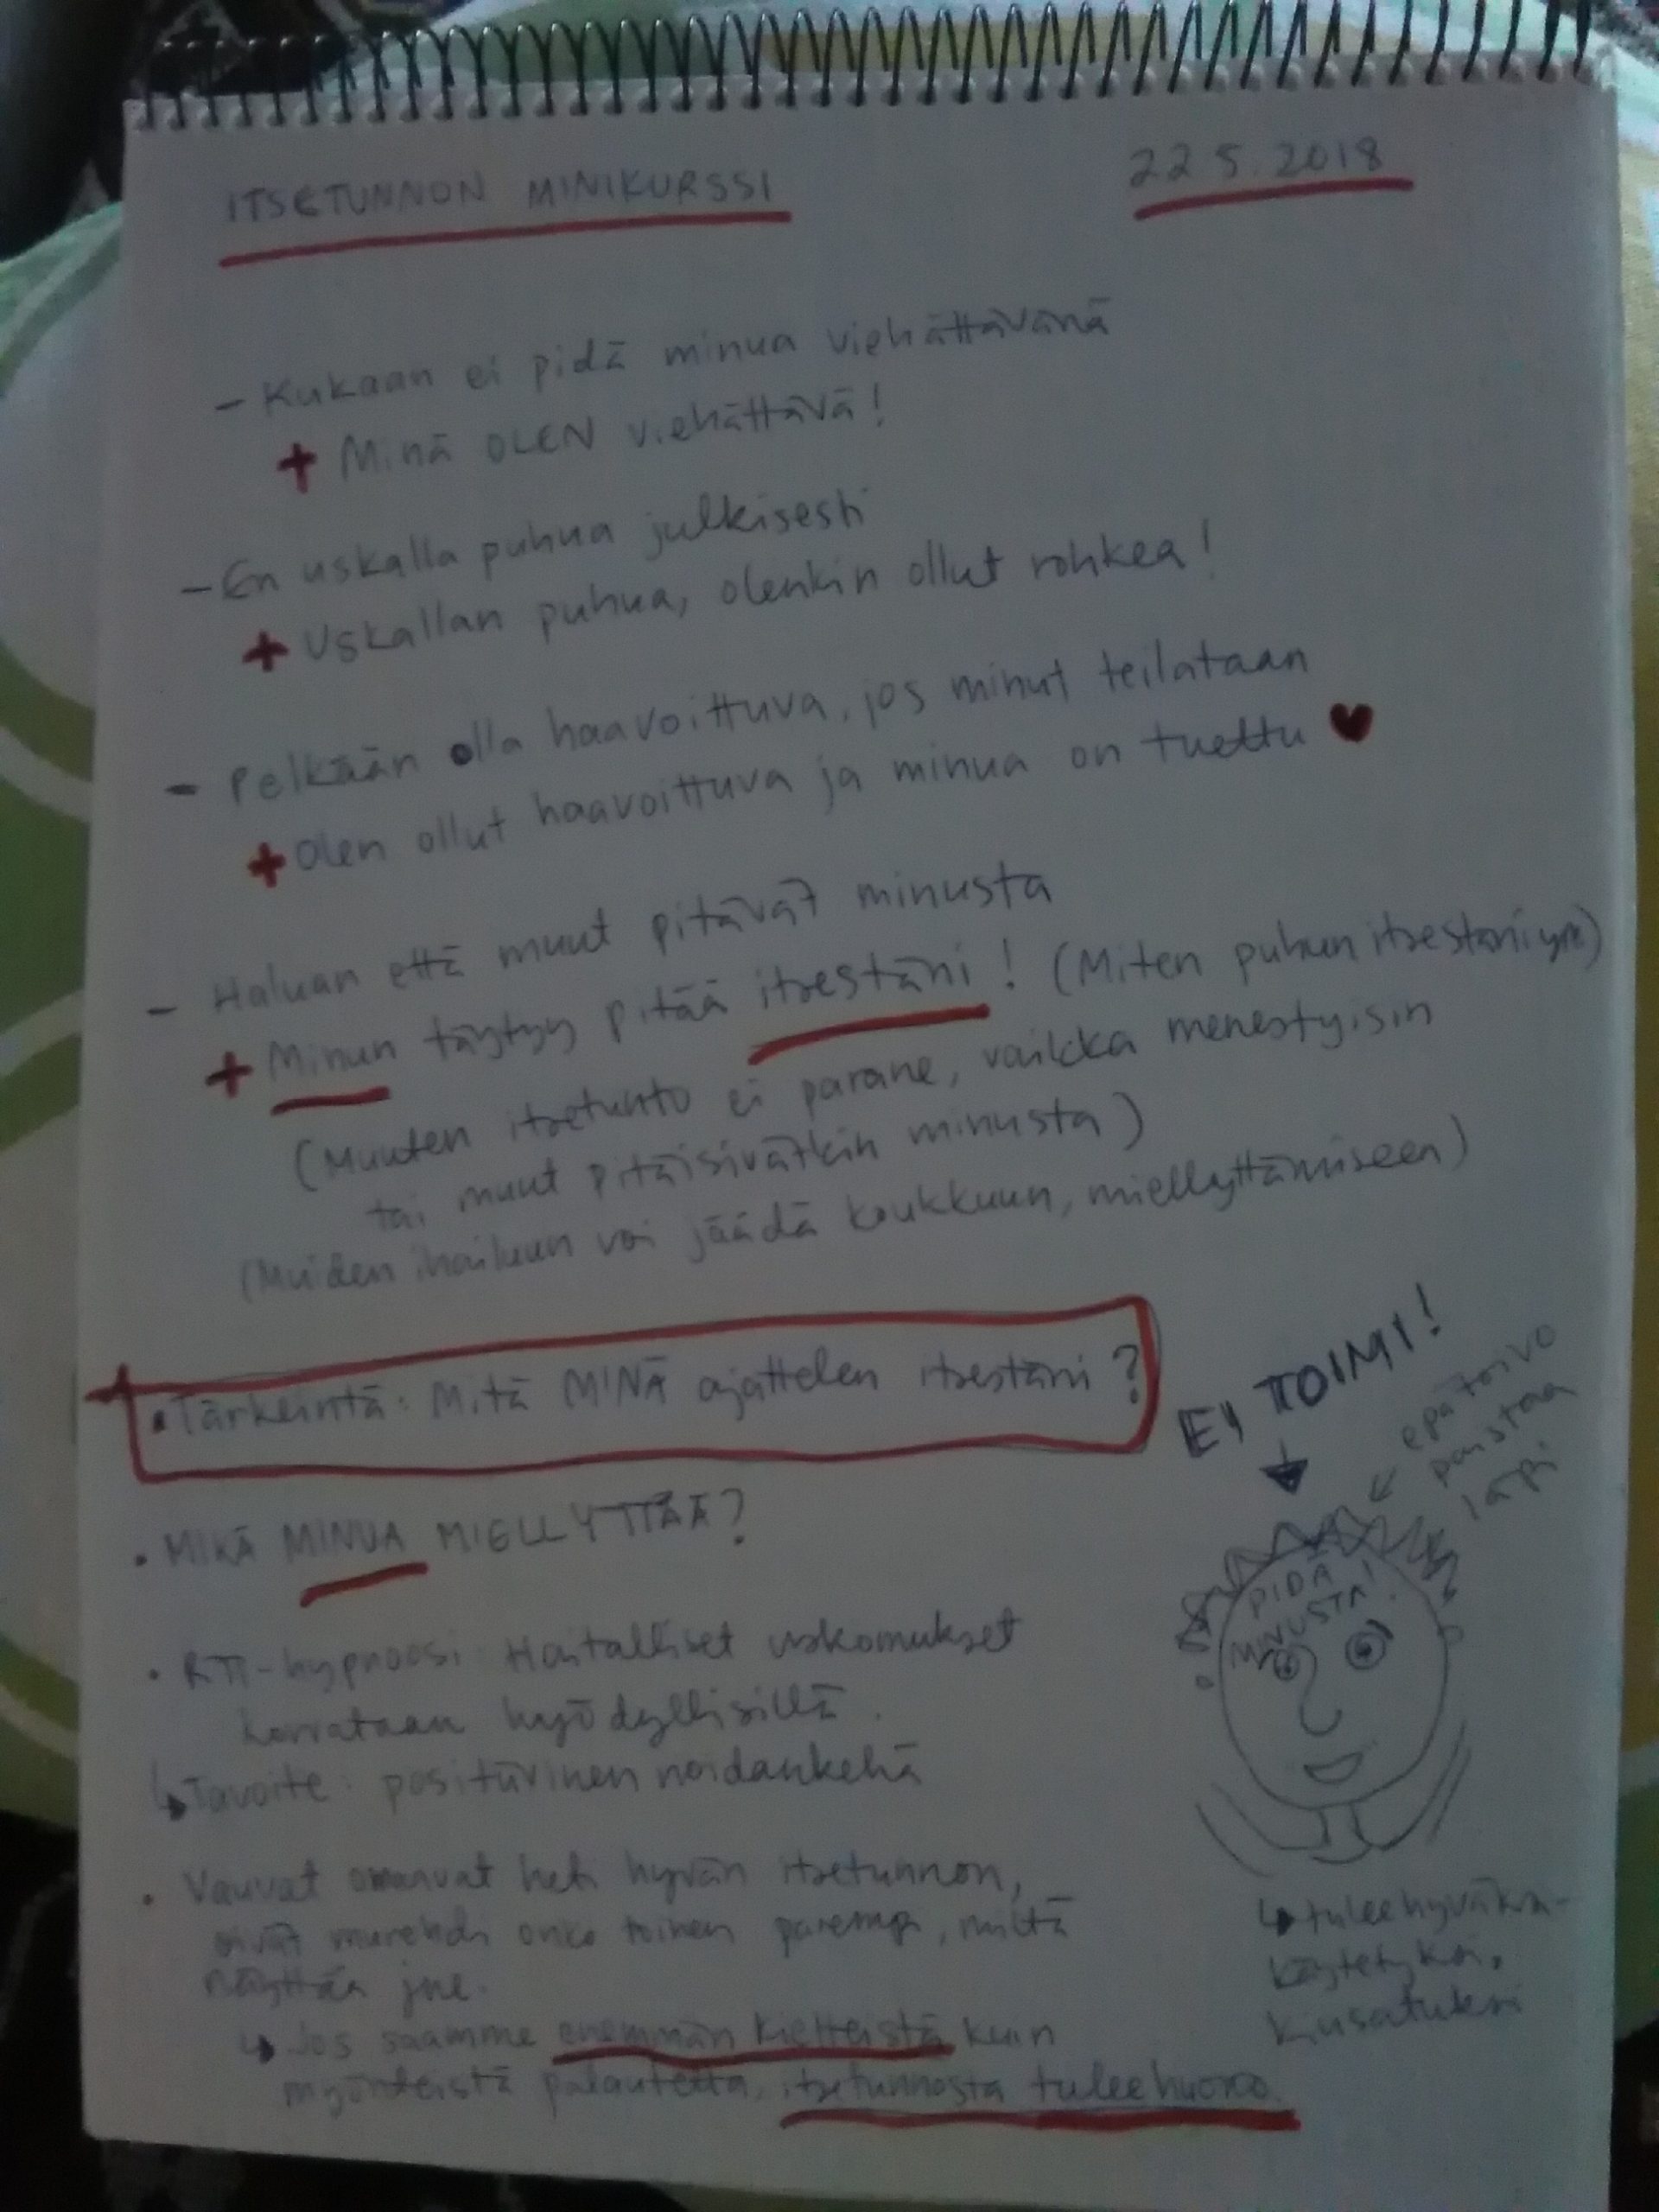 ITSETUNNON MINIKURSSI
22.5.2018
- Kukaan ei pidä minua viehättävänä
+ Minä OLEN viehättävä!
- En uskalla puhua julkisesti
+ Uskallan puhua, olenkin ollut rohkea!
- Pelkään olla haavoittuva, jos minut teilataan
+ Olen ollut haavoittuva ja minua on tuettu ♥
- Haluan että muut pitävät minusta
+ Minun täytyy pitää itsestäni! (Miten puhun itsestäni ym)
(Muuten itsetunto ei parane, vaikka menestyisin
tai muut pitäisivätkin minusta)
(Muiden ihailuun voi jäädä koukkuun, miellyttämiseen)
• Tärkeintä: Mitä MINÄ ajattelen itsestäni?
• MIKÄ MINUA MIELLYTTÄÄ?
• RTT-hypnoosi: Haitalliset uskomukset
korvataan hyödyllisillä.
↳ Tavoite: positiivinen noidankehä
• Vauvat omaavat heti hyvän itsetunnon,
eivät murehdi onko toinen parempi, miltä
näyttää jne.
↳ Jos saamme enemmän kielteistä kuin
myönteistä palautetta, itsetunnosta tulee huono.
EI TOIMI!
← epätoivo
paistaa
läpi
PIDÄ
MINUSTA!
↳ tulee hyväksi-
käytetyksi,
kiusatuksi